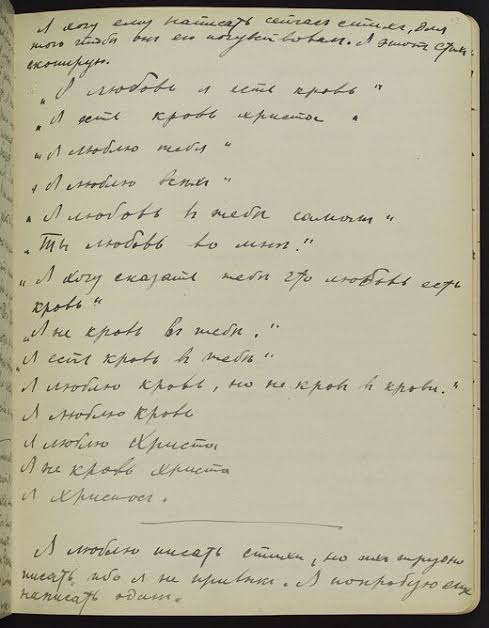 Я хочу ему написать сейчас стихи, для
того чтобы они его почувствовали. Я этот стих
скопирую.
„Я любовь я есть кровь“
„Я есть кровь христа“
„Я люблю тебя“
„Я люблю всех“
„Я любовь в тебе самом“
„Ты любовь во мне.“
„Я хочу сказать тебе что любовь есть
кровь“
„Я не кровь въ тебе.“
„Я есть кровь в тебе“
Я люблю кровь, но не кровь в крови.“
Я люблю кровь
Я люблю Христа
Я не кровь Христа
Я Христосъ.
Я люблю писать стихи, но мне трудно
писать ибо я не привык. Я попробую еще
написать один.